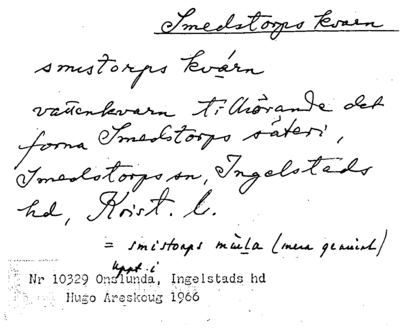 Smedstorps kvarn
smistorps kvárn
vattenkvarn tillhörande det
forna Smedstorps säteri,
Smedstorps sn, Ingelstads
hd, Krist. l.
= smistorps mùla (mera genuint)
uppt. i
Nr 10329 Onslunda, Ingelstads hd
Hugo Areskoug 1966